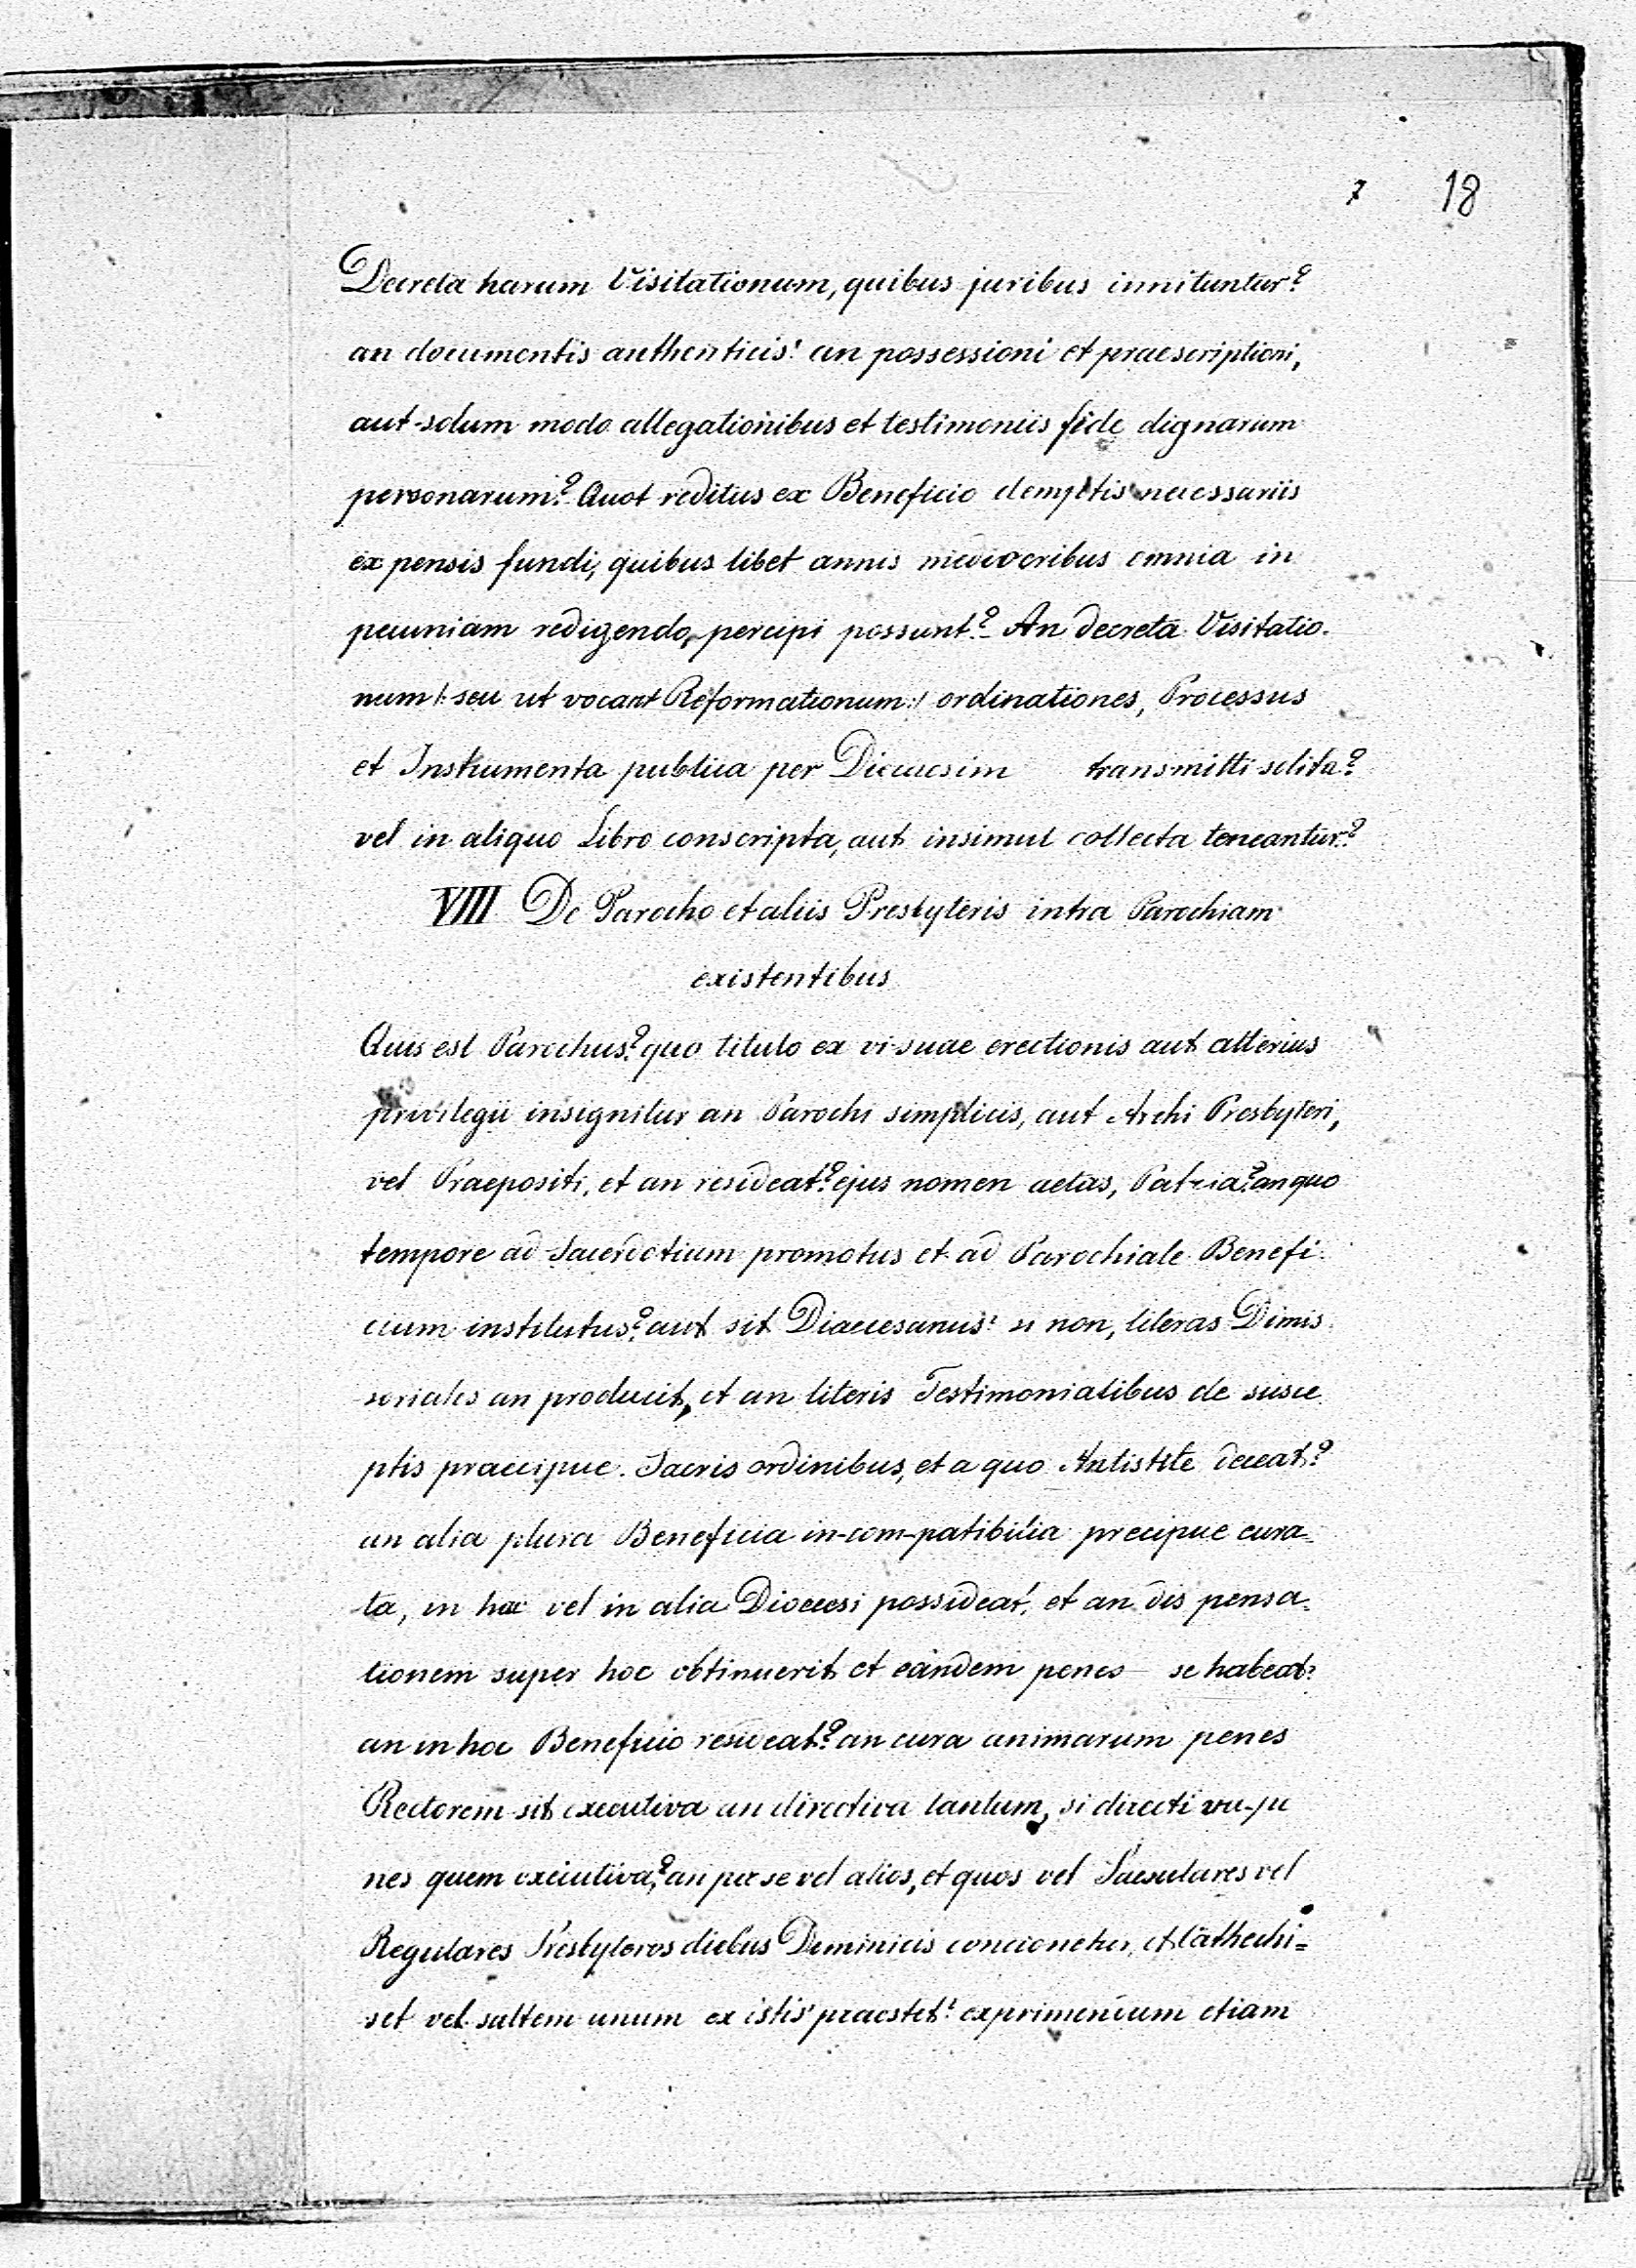 7 18
Decreta harum Visitationum, quibus juribus innituntur?
an documentis authenticis? an possessioni et praescriptioni,
aut solum modo allegationibus et testimoniis fide dignarum
personarum? Quot reditus ex Beneficio demptis necessariis
expensis fundi, quibus libet annis mediocribus omnia in
pecuniam redigendo, percipi possunt? An decreta Visitatio-
num /: seu ut vocant Reformationum :/ ordinationes, Processus
et Instrumenta publica per Dieucesim transmitti solita?
vel in aliquo Libro conscripta, aut insimul collecta teneantur?
VIII De Parocho et aliis Presbyteris intra Parochiam
existentibus
Quis est Parochus? quo titulo ex vi suae erectionis aut alterius
privilegii insignitur an Parochi simplicis, aut Archi Presbyteri,
vel Praepositi, et an resideat? ejus nomen aetas, Patria? an quo
tempore ad Sacerdotium promotus et ad Parochiale Benefi-
cium institutus? aut sit Diaecesanus? si non, literas Dimis-
soriales an producit, et an literis Testimonialibus de susce
ptis praecipue Sacris ordinibus, et a quo Antistite deceat?
an alia plura Beneficia in-com-patibilia precipue cura-
ta, in hac vel in alia Dioecesi possideat, et an dis pensa-
tionem super hoc obtinuerit et eandem penes se habeat?
an in hoc Beneficio resideat? an cura animarum penes
Rectorem sit executiva an directiva tantum, si directiva pe
nes quem executiva? an per se vel alios, et quos vel Saeculares vel
Regulares Presbyteros diebus Dominicis concionetur, et Cathechi=
set vel saltem unum ex istis praestet? exprimendum etiam